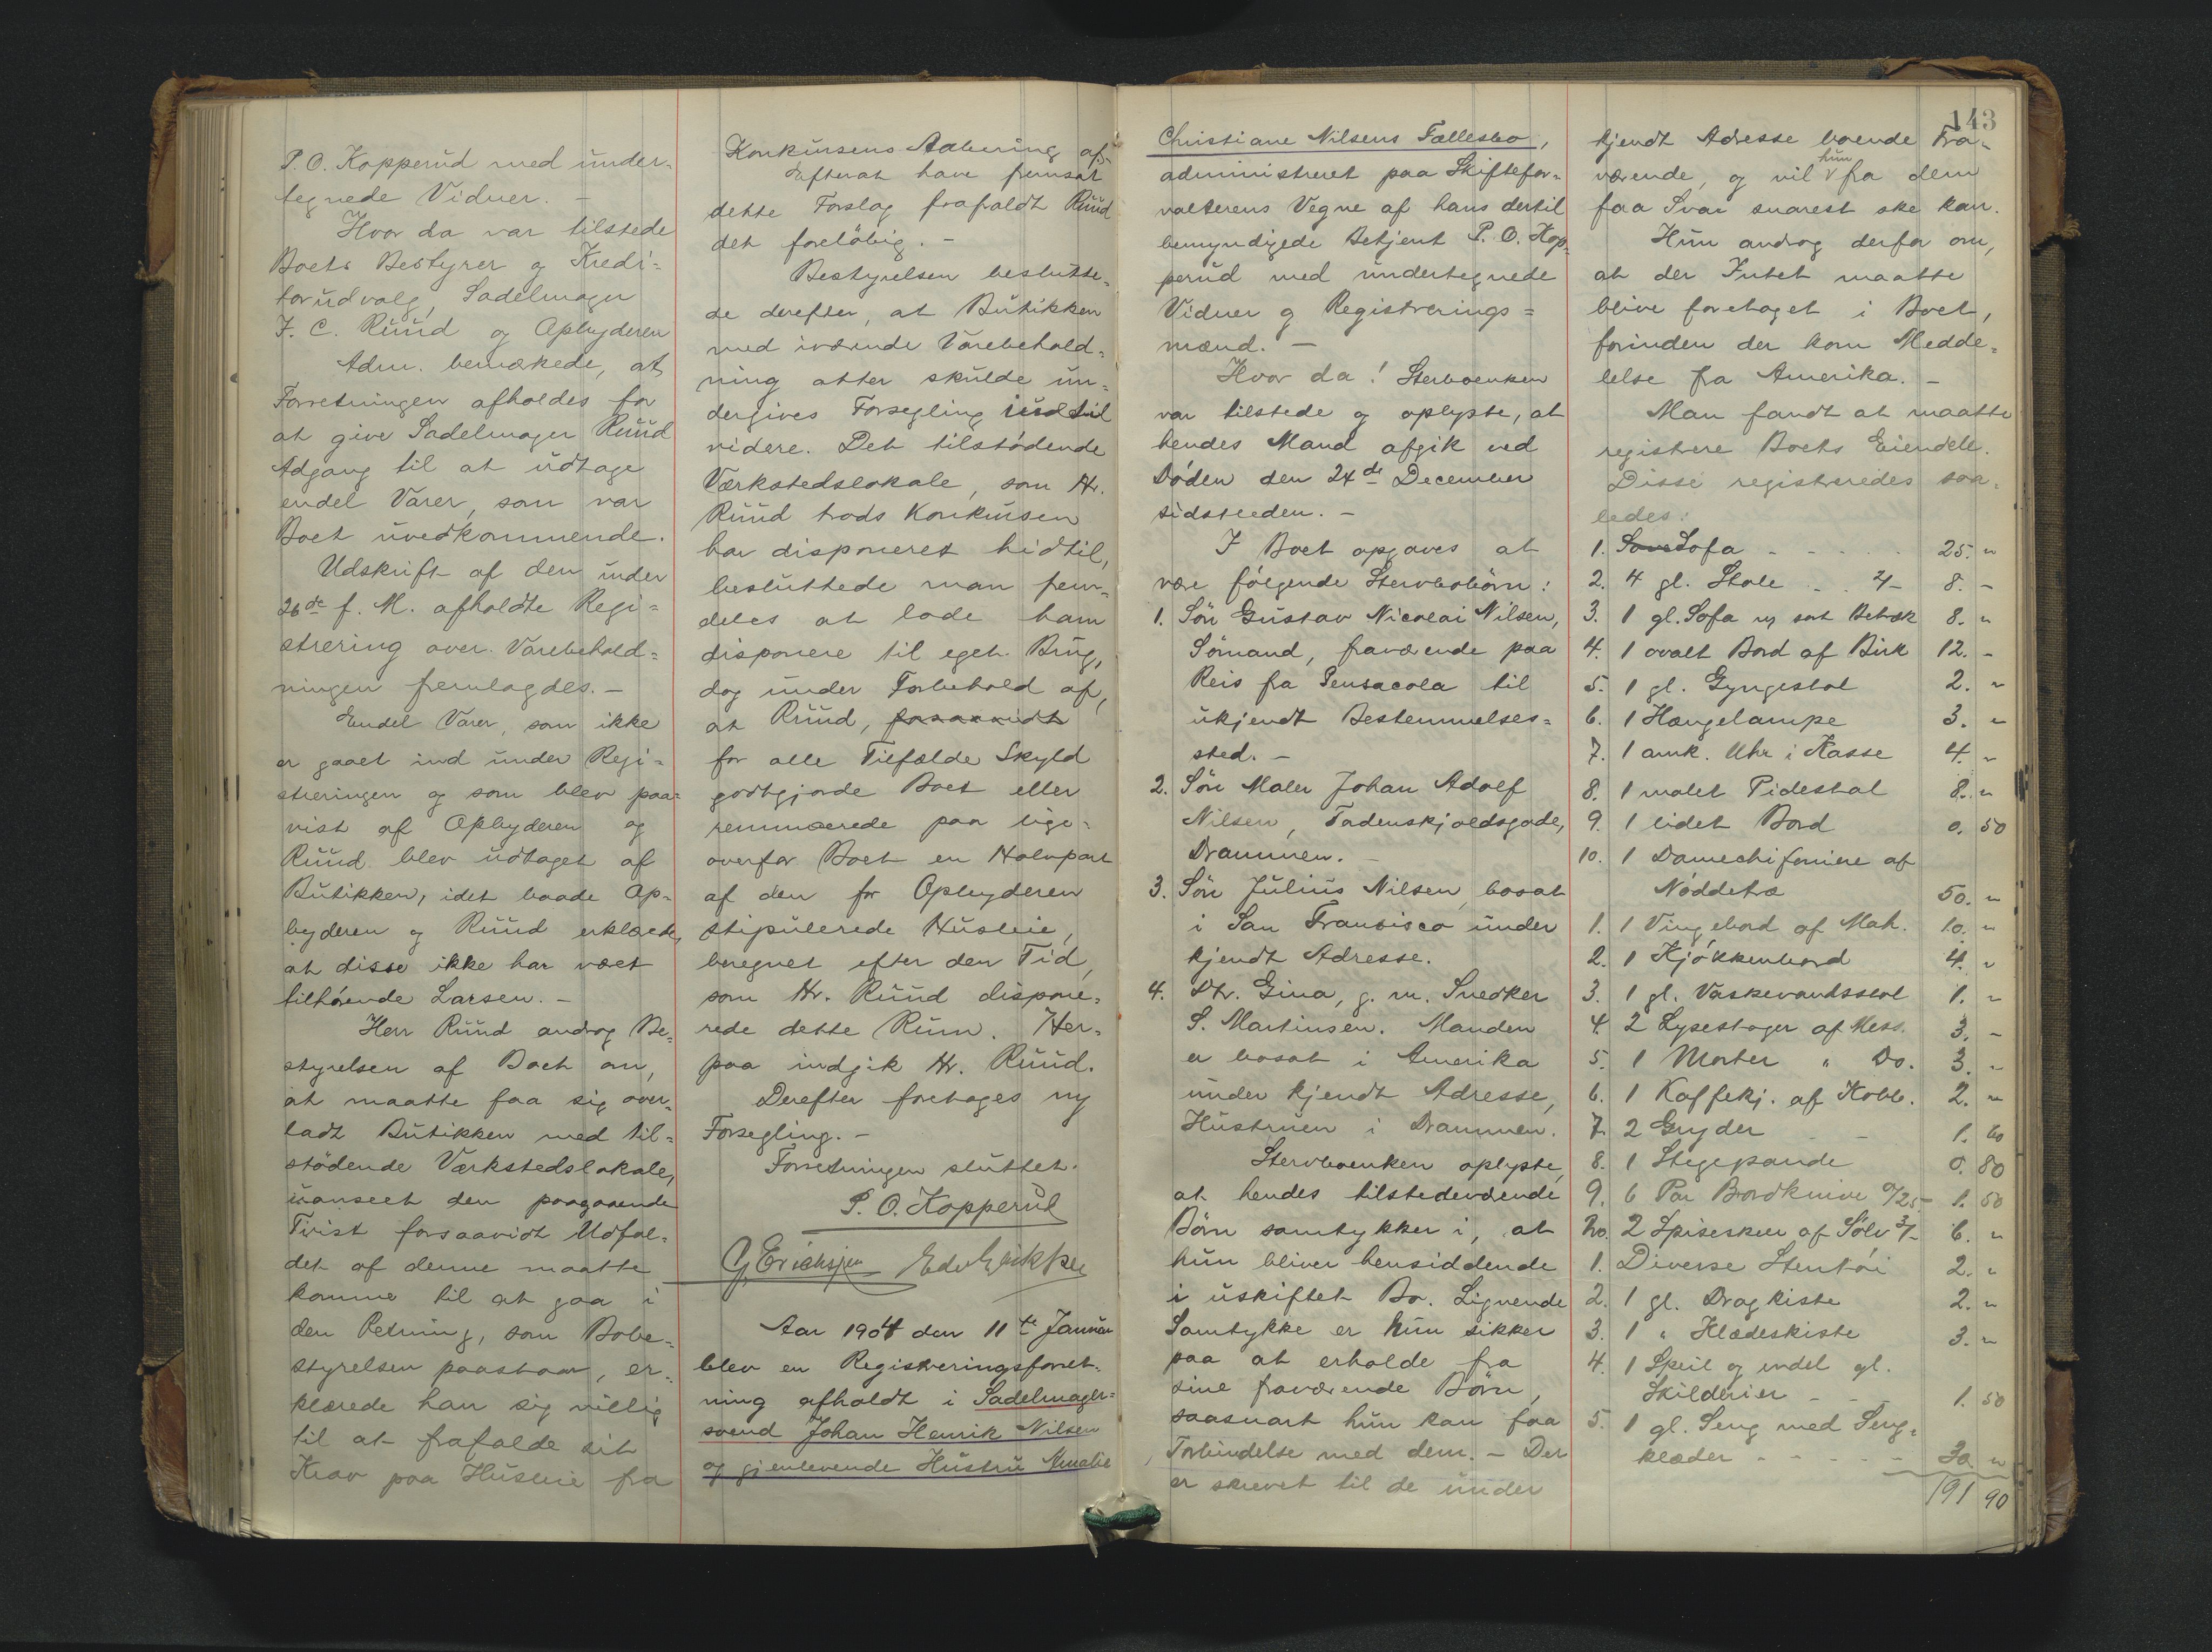 P. O. Kopperud med under-
tegnede Vidner. -
Hvor da var tilstede
Boets Bestyrer og Kredi=
torudvalg, Sadelmager
F. C. Ruud og Opbyderen
Adm. bemærkede, at
Forretningen afholdes for
at give Sadelmager Ruud
Adgang til at udtage
endel Varer, som var
Boet uvedkommende.
Udskrift af den under
26de f. M. afholdte Regi=
strering over Varebehold=
ningen fremlagdes. -
Endel Varer, som ikke
er gaaet ind under Regi=
streringen og som blev paa=
vist af Opbyderen og
Ruud blev udtaget af
Butikken, idet baade Op=
byderen og Ruud erklærede,
at disse ikke har været
tilhørende Larsen. -
Herr Ruud androg Be=
styrelsen af Boet om,
at maatte faa sig over=
ladt Butikken med til=
stødende Værkstedslokale,
uanseet den paagaaende
Tvist forsaavidt Udfal=
det af denne maatte
komme til at gaa i
den Retning, som Bobe=
styrelsen paastaar, er=
klærede han sig villig
til at frafalde sit
Krav paa Husleie fra
Konkursens Aabning af.
Efterat have fremsat
dette Forslag frafaldt Ruud
det foreløbig. -
Bestyrelsen beslutte=
de derefter, at Butikken
med iværende Varebehold=
ning atter skulde un=
dergives Forsegling indtil
videre. Det tilstødende
Værkstedslokale, som Hr.
Ruud trods Konkursen
har disponeret hidtil,
besluttede man frem=
deles at lade ham
disponere til eget Brug,
dog under Forbehold af,
at Ruud, forsaavidt
for alle Tilfælde Skyld
godtgjorde Boet eller
remunerede paa lige=
overfor Boet en Halvpart
af den for Opbyderen
stipulerede Husleie,
beregnet efter den Tid,
som Hr. Ruud dispone=
rede dette Rum. Her=
paa indgik Hr. Ruud.
Derefter foretages ny
Forsegling. -
Forretningen sluttet.
P. O. Kopperud
G Erichsen
Aar 1904 den 11te Januar
blev en Registreringsforret=
ning afholdt i Sadelmager=
svend Johan Henrik Nilsen
og gjenlevende Hustru Amalie
143
Christiane Nilsens Fællesbo,
administreret paa Skiftefor=
valterens Vegne af hans dertil
bemyndigede Betjent P. O. Kop=
perud med undertegnede
Vidner og Registrerings=
mænd. -
Hvor da! Sterboenken
var tilstede og oplyste, at
hendes Mand afgik ved
Døden den 24de December
sidstleden. -
I Boet opgaves at
være følgende Stervbobørn:
1. Søn Gustav Nicolai Nilsen,
Sømand, fraværende paa
Reis fra Pensacola til
ukjendt Bestemmelses=
sted. -
2. Søn Maler Johan Adolf
Nilsen, Tordenskjoldsgade,
Drammen. -
3. Søn Julius Nilsen, bosat
i San Fransisco under
kjendt Adresse.
4. Dtr. Gina, g. m. Snedker
S. Martinsen. Manden
er bosat i Amerika
under kjendt Adresse,
Hustruen i Drammen.
Stervboenken oplyste,
at hendes tilstedeværende
Børn samtykker i, at
hun bliver hensiddende
i uskiftet Bo. Lignende
Samtykke er hun sikker
paa at erholde fra
sine fraværende Børn,
saasnart hun kan faa
Forbindelse med dem. - Der
er skrevet til de under
kjendt Adresse boende Fra=
værende, og vil hun fra dem
faa Svar snarest ske kan.
Hun androg derfor om,
at der Intet maatte
blive foretaget i Boet,
forinden der kom Medde=
lelse fra Amerika. -
Man fandt at maatte
registrere Boets Eiendele.
Disse registreredes saa=
ledes:
1. Sove Sofa - - - 25. "
2. 4 gl. Stole . . 2/- 8. -
3. 1 gl. Sofa m sort Betræk 8. "
4. 1 ovalt Bord af Birk 12. -
5. 1 gl. Gyngestol 2. "
6. 1 Hængelampe 3. "
7. 1 amk. Uhr i Kasse 4. "
8. 1 malet Pidestal 8. "
9. 1 lidet Bord 0. 50
10. 1 Damechifoniere af
Nøddetræ 50. "
1. 1 Vingebord af Mah. 10. "
2. 1 Kjøkkenbord 4. "
3. 1 gl. Vaskevandsstol 1. "
4. 2 Lysestager af Mess. 3. -
5. 1 Morter " Do. 3. "
6. 1 Kaffekj. af Kobb. 2. "
7. 2 Gryder - - 1. 60
8. 1 Stegepande 0. 80
9. 6 Par Bordknive 0/25 1. 50
20. 2 Spiseskeer af Sølv 3/- 6. "
1. Diverse Stentøi 2. "
2. 1 gl. Dragkiste 2. "
3. 1 " Klædeskiste 3. "
4. 1 Speil og endel gl.
Skilderier - - 1. 50
5. 1 gl. Seng med Seng=
klæder - - - - - 30 "
191 90